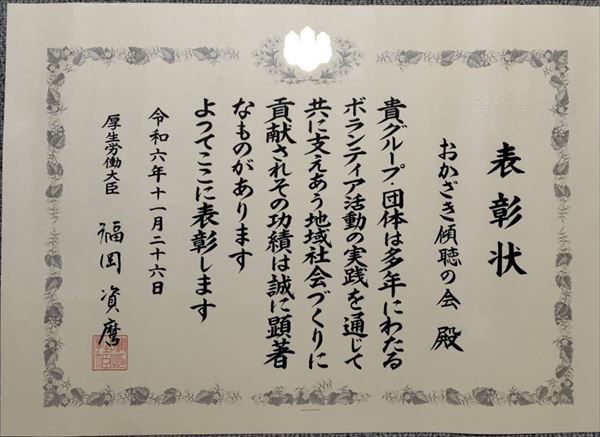 表彰状
おかざき傾聴の会 殿
貴グループ・団体は多年にわたる
ボランティア活動の実践を通じて
共に支えあう地域社会づくりに
貢献されその功績は誠に顕著
なものがあります
よってここに表彰します
令和六年十一月二十六日
厚生労働大臣 福岡資麿